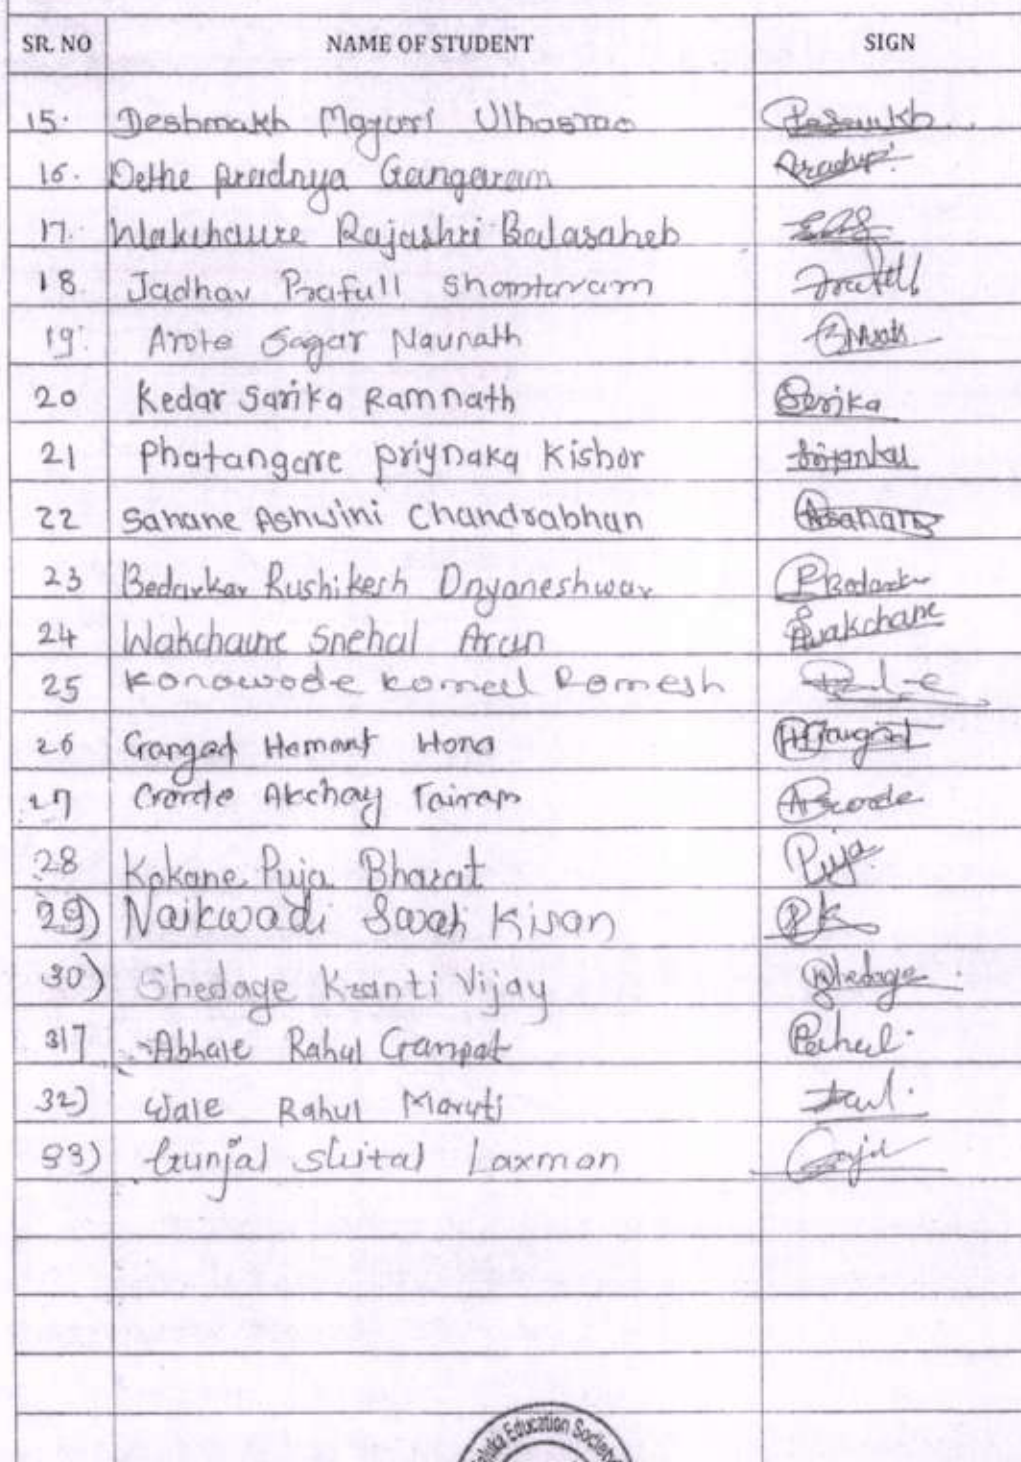 SR. NO NAME OF STUDENT SIGN
15. Deshmakh Mayuri Ulhasrao
16. Dethe pradnya Gangaram
17. Wakchaure Rajashri Balasaheb
18. Jadhav Prafull Shantaram
19. Arote Sagar Navnath
20 Kedar Sarika Ramnath Sarika
21 Phatangare priynaka Kishor
22 Sahane Ashwini Chandrabhan
23 Bedarkar Rushikesh Dnyaneshwar
24 Wakchaure Snehal Arun
25 Kanawode Komal Ramesh
26 Gangad Hemant
27 Akchay
28 Kokane Puja Bharat Puja
29) Naikwadi Kisan
30) Shedage Kranti Vijay Shedage
317 Abhale Rahul Ganpat Rahul
32) Wale Rahul Maruti
33) Gunjal Shital Laxman
Education Society